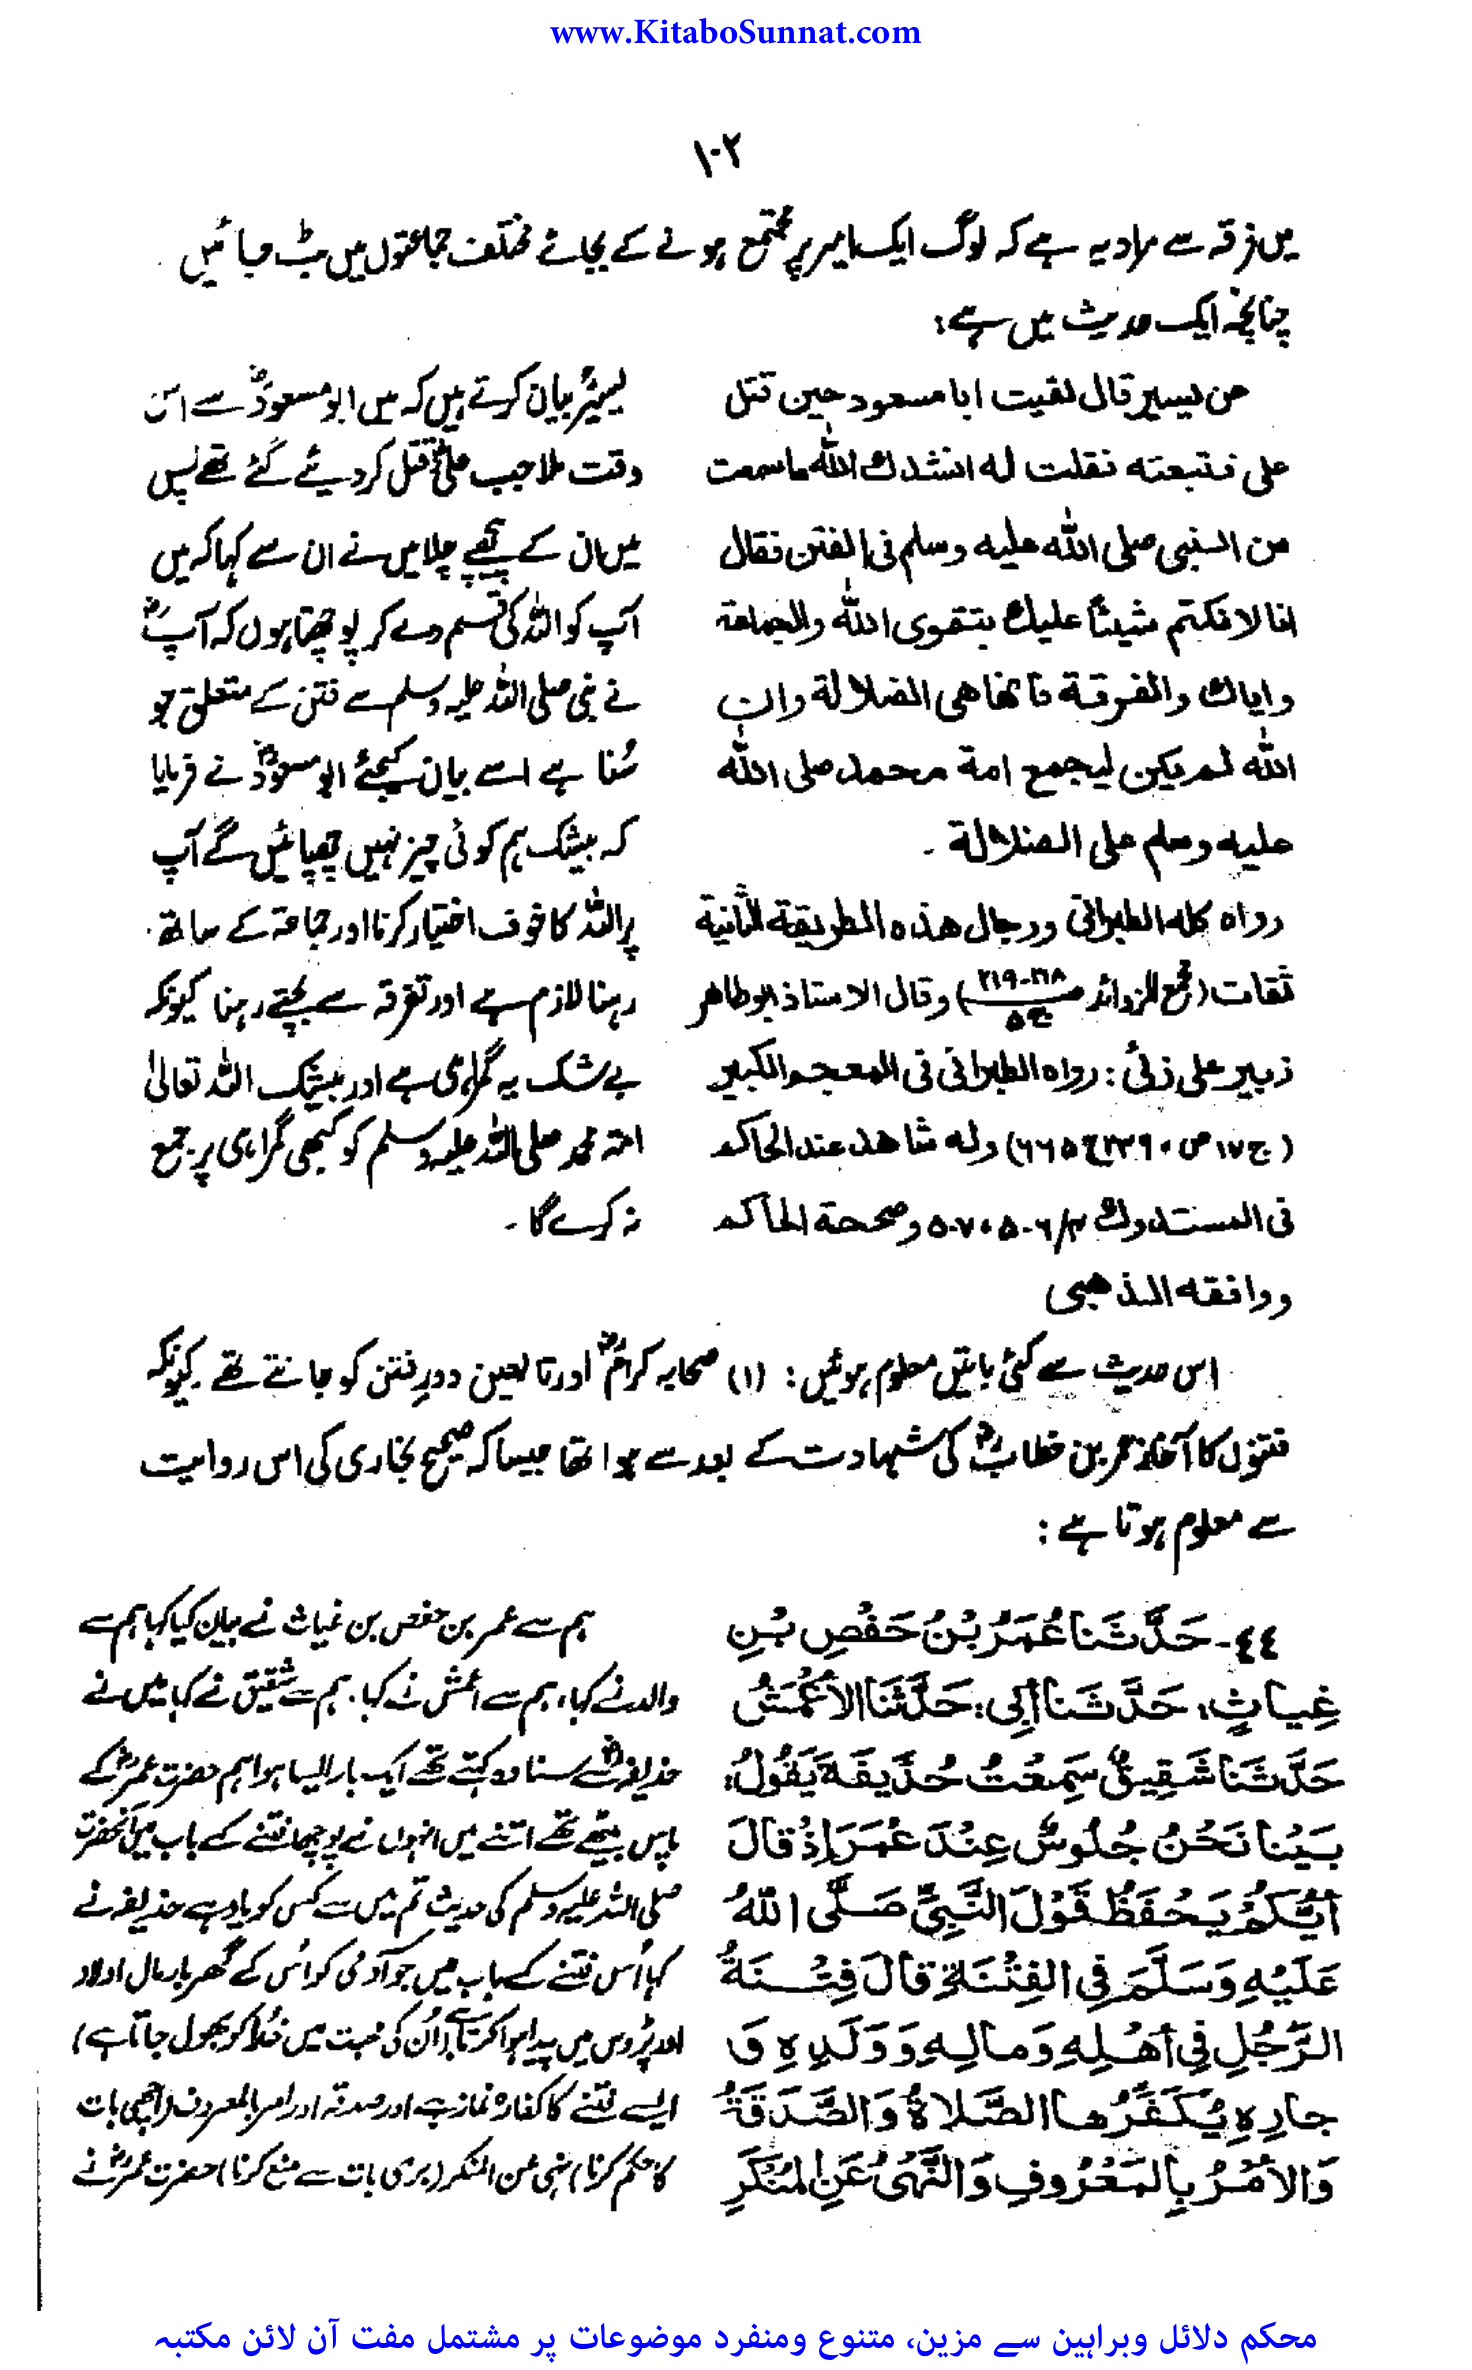 www.KitaboSunnat.com
۱۰۲
میں فرقہ سے مراد یہ ہے کہ لوگ ایک امیر پر مجتمع ہونے کے بجائے مختلف جماعتوں میں بٹ جائیں
چنانچہ ایک حدیث میں ہے:
عن یسیر قال لقیت ابا مسعود حین قتل
علی فتبعته فقلت له انشدك الله ما سمعت
من النبی صلی الله علیه وسلم فی الفتن فقال
انا لا نکتم شیئاً علیك بتقوی الله والجماعة
وایاك والفرقة فانها هی الضلالة وان
الله لم یکن لیجمع امة محمد صلی الله
علیه وسلم علی الضلالة ۔
رواه کله الطبرانی ورجال هذه الطریقة الثانیة
ثقات (مجمع الزوائد ص ۲۱۸-۲۱۹ ج ۵) وقال الاستاذ ابو طاهر
زبیر علی زئی: رواه الطبرانی فی المعجم الکبیر
(ج ۱۷ ص ۲۳۹، ح ۶۶۵) وله شاهد عند الحاکم
فی المستدرك ۴/۵۰۶، ۵۰۷ وصححة الحاکم
ووافقه الذهبی
یسیرؒ بیان کرتے ہیں کہ میں ابو مسعودؓ سے اس
وقت ملا جب علیؓ قتل کر دیئے گئے تھے پس
میں ان کے پیچھے چلا میں نے ان سے کہا کہ میں
آپ کو اللہ کی قسم دے کر پوچھتا ہوں کہ آپؓ
نے نبی صلی اللہ علیہ وسلم سے فتن کے متعلق جو
سُنا ہے اسے بیان کیجئے ابو مسعودؓ نے فرمایا
کہ بیشک ہم کوئی چیز نہیں چھپائیں گے آپ
پر اللہ کا خوف اختیار کرنا اور جماعۃ کے ساتھ
رہنا لازم ہے اور تفرقہ سے بچتے رہنا کیونکہ
بے شک یہ گمراہی ہے اور بیشک اللہ تعالیٰ
امۃ محمد صلی اللہ علیہ وسلم کو کبھی گمراہی پر جمع
نہ کرے گا ۔
اس حدیث سے کئی باتیں معلوم ہوئیں: (۱) صحابہ کرامؓ اور تابعین دورِ فتن کو جانتے تھے کیونکہ
فتنوں کا آغاز عمر بن خطابؓ کی شہادت کے بعد سے ہوا تھا جیسا کہ صحیح بخاری کی اس روایت
سے معلوم ہوتا ہے :
٤٤- حَدَّثَنَا عُمَرُ بْنُ حَفْصِ بْنِ
غِیاثٍ، حَدَّثَنا أبِی: حَدَّثَنَا الأَعْمَشُ
حَدَّثَنا شَقِیقٌ سَمِعْتُ حُذَیفَةَ یَقُولُ:
بَیْنا نَحْنُ جُلُوسٌ عِنْدَ عُمَرَ إِذْ قالَ
أیُّکُمْ یَحْفَظُ قَوْلَ النَّبِیِّ صَلَّی اللهُ
عَلَیْهِ وَسَلَّمَ فِی الفِتْنَةِ قالَ فِتْنَةُ
الرَّجُلِ فِی أهْلِهِ وَمالِهِ وَوَلَدِهِ وَ
جارِهِ یُکَفِّرُها الصَّلاةُ وَالصَّدَقَةُ
وَالأمْرُ بِالمَعْرُوفِ وَالنَّهْیُ عَنِ المُنْکَرِ
ہم سے عمر بن حفص بن غیاث نے بیان کیا کہا ہم سے
والد نے کہا، ہم سے اعمش نے کہا، ہم سے شقیق نے کہا میں نے
حذیفہؓ سے سنا وہ کہتے تھے ایک بار ایسا ہوا ہم حضرت عمرؓ کے
پاس بیٹھے تھے اتنے میں انہوں نے پوچھا فتنے کے باب میں آنحضرت
صلی اللہ علیہ وسلم کی حدیث تم میں سے کس کو یاد ہے حذیفہ نے
کہا اُس فتنے کے باب میں جو آدمی کو اس کے گھر بار مال اولاد
اور پڑوس میں پیدا ہوا کرتا ہے (اُن کی محبت میں خدا کو بھول جاتا ہے)
ایسے فتنے کا کفارہ نماز ہے اور صدقہ اور امر بالمعروف (اچھی بات
کا حکم کرنا) نہی عن المنکر (بری بات سے منع کرنا) حضرت عمرؓ نے
محکم دلائل وبراہین سے مزین، متنوع ومنفرد موضوعات پر مشتمل مفت آن لائن مکتبہ